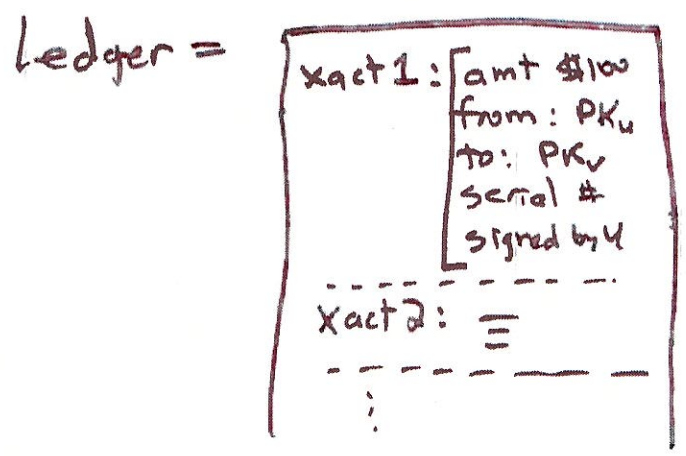 Ledger =
xact1: amt $100
from: PKu
to: PKv
serial #
signed by U
xact2: